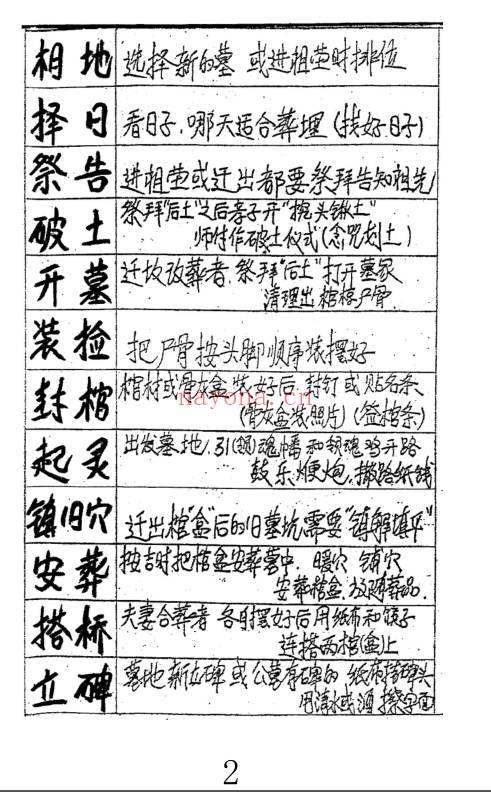 相地 选择新的墓 或进祖茔时排位
择日 看日子.哪天适合葬埋(找好日子)
祭告 进祖茔或迁出都要祭拜告知祖先
破土 祭拜"后土"之后孝子开"挖头锹土"
师付作破土仪式(念咒划土)
开墓 迁坟改葬者.祭拜"后土"打开墓冢
清理出棺椁尸骨.
装捡 把尸骨按头脚顺序装摆好
封棺 棺材或骨灰盒装好后 封钉或贴名条
(骨灰盒装照片)(签棺条)
nayona.cn
起灵 出发墓地.引(领)魂幡和领魂鸡开路
鼓乐.鞭炮.撒路纸钱
镇旧穴 迁出棺"盒"后的旧墓坑需要"镇解填平"
安葬 按吉时把棺盒安葬茔中.暖穴 铺穴
安葬棺盒.放随葬品.
搭桥 夫妻合葬者 各自摆好后用纸布和筷子
连搭两棺(盒)上
立碑 墓地新立碑或公墓有碑的 纸布搭碑头
用清水或酒擦字面
2